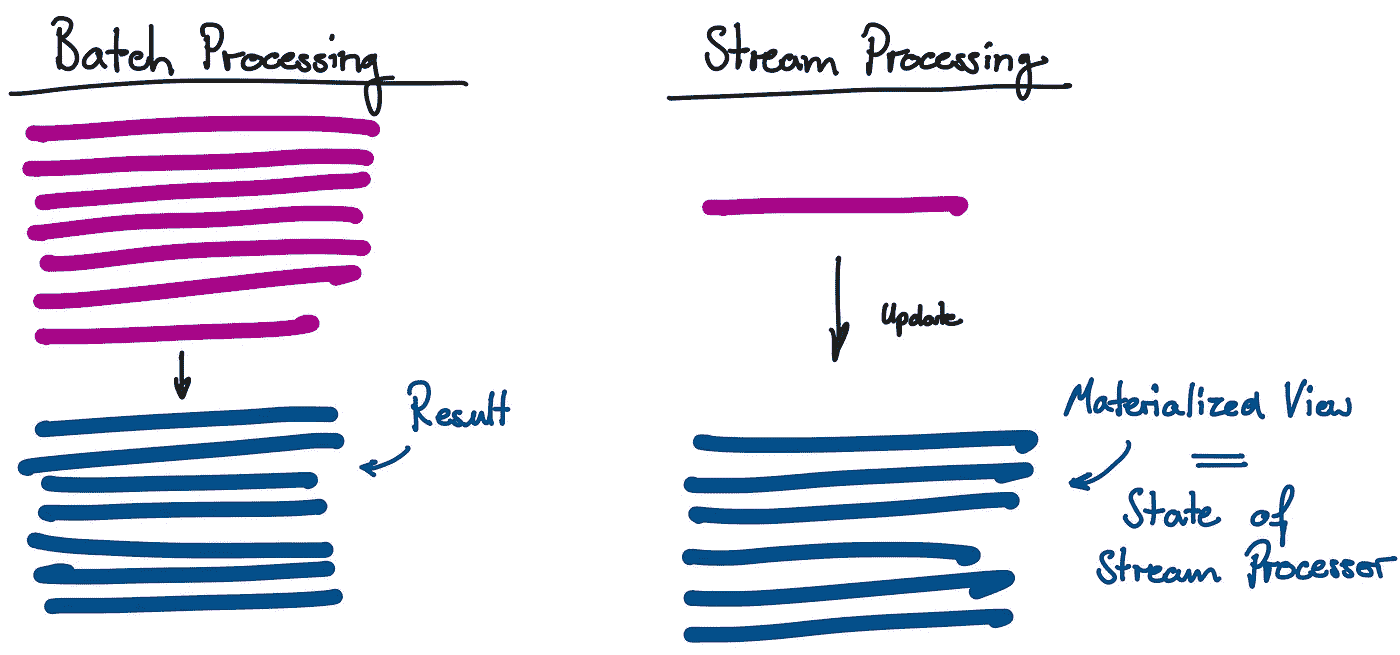 Batch Processing
Stream Processing
Update
Result
Materialized View
=
State of
Stream Processor